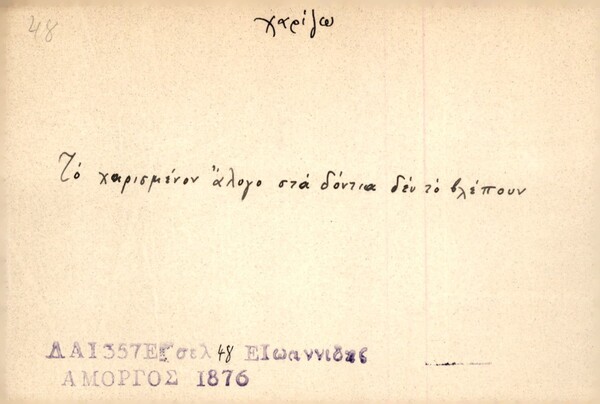 48
χαρίζω
Τό χαρισμένον ἄλογο στά δόντια δέν τό βλέπουν
ΛΑ1357ΕΓσελ 48 ΕΙωαννιδης
ΑΜΟΡΓΟΣ 1876